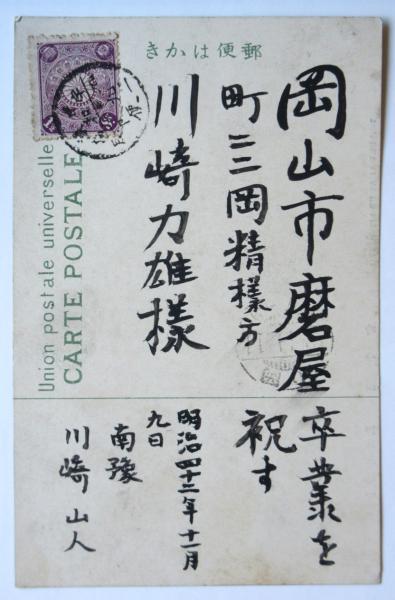 郵便はかき
岡山市磨屋
町三二岡精様方
川崎力雄様
卒業を
祝す
明治四十二年十一月
九日
南豫
川崎山人
Union postale universelle
CARTE POSTALE